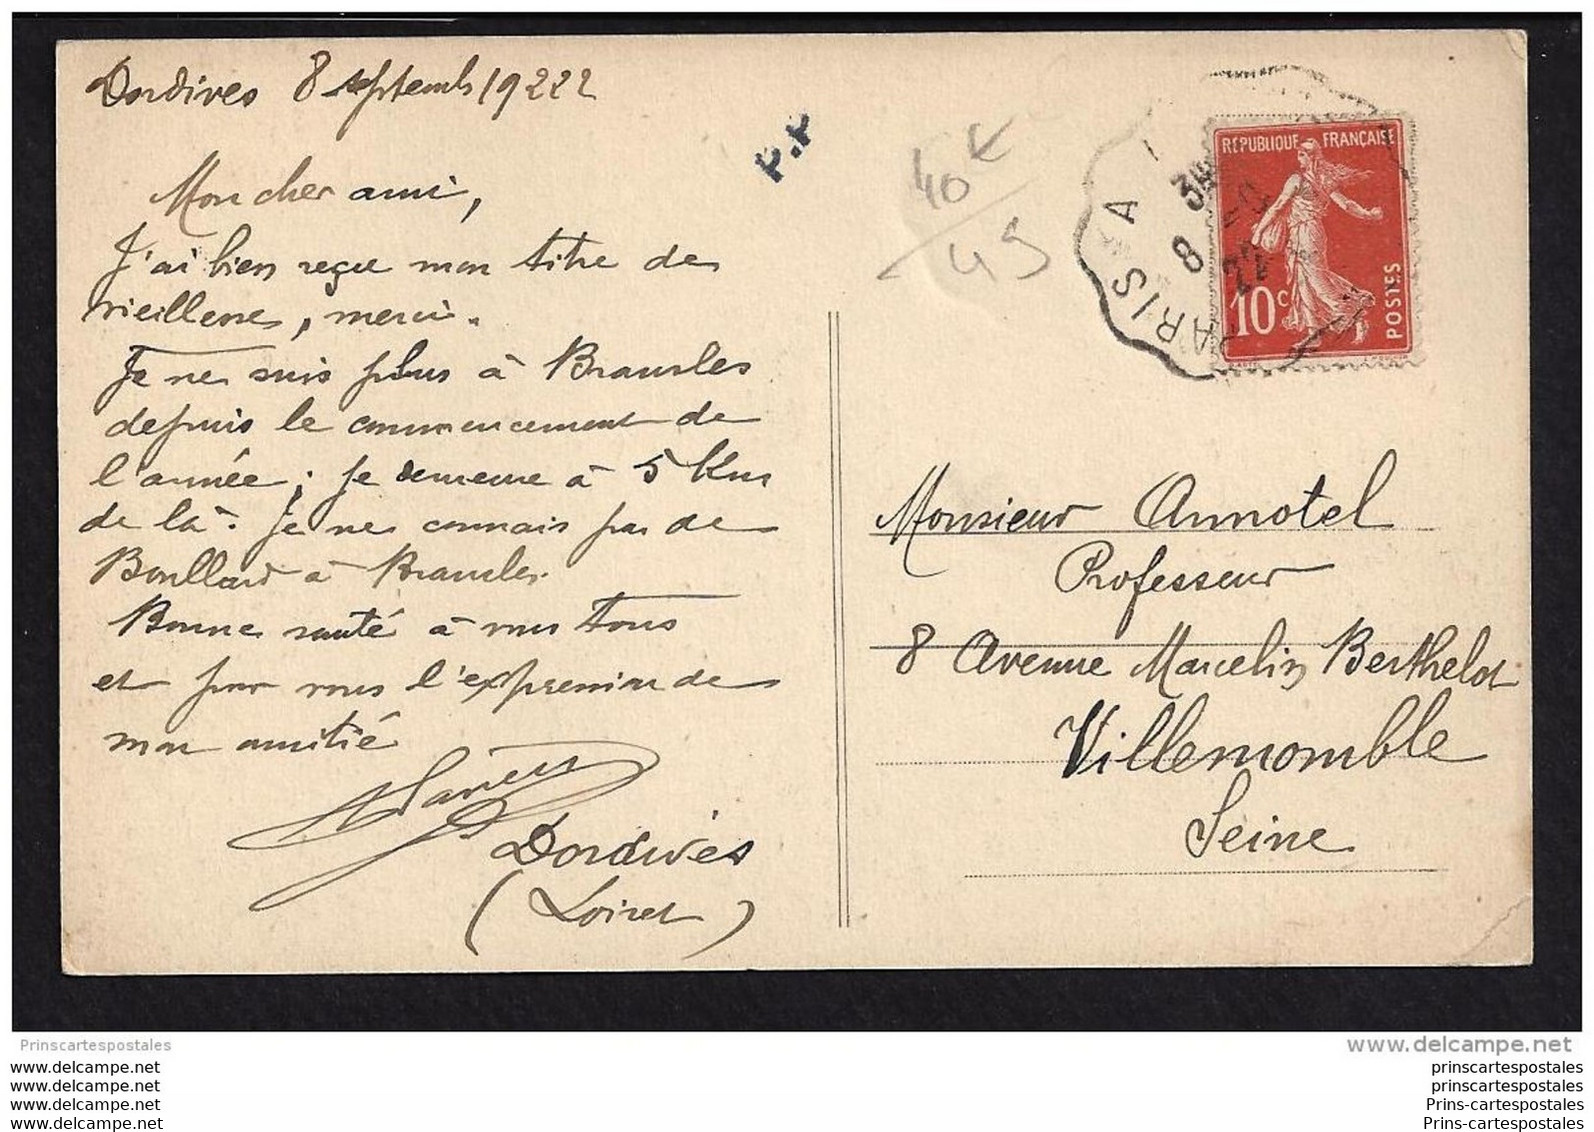 Dordives 8 septemb 19222
Mon cher ami,
J'ai bien reçu mon titre de
vieillesse, merci.
Je ne suis plus à Bransles
depuis le commencement de
l'année; je demeure à 5 Km
de là. Je ne connais pas de
Boullard à Bransles.
Bonne santé à vous tous
et pour vous l'expression de
mon amitié
Dordives
(Loiret)
P.P
40 €
45
PARIS A
38
8 - 9
22
RÉPUBLIQUE FRANÇAISE
10c
POSTES
Monsieur Annotel
Professeur
8 Avenue Marcelin Berthelot
Villemomble
Seine
Prinscartespostales
www.delcampe.net
www.delcampe.net
www.delcampe.net
www.delcampe.net
www.delcampe.net
prinscartespostales
prinscartespostales
Prins-cartespostales
Prins-cartespostales